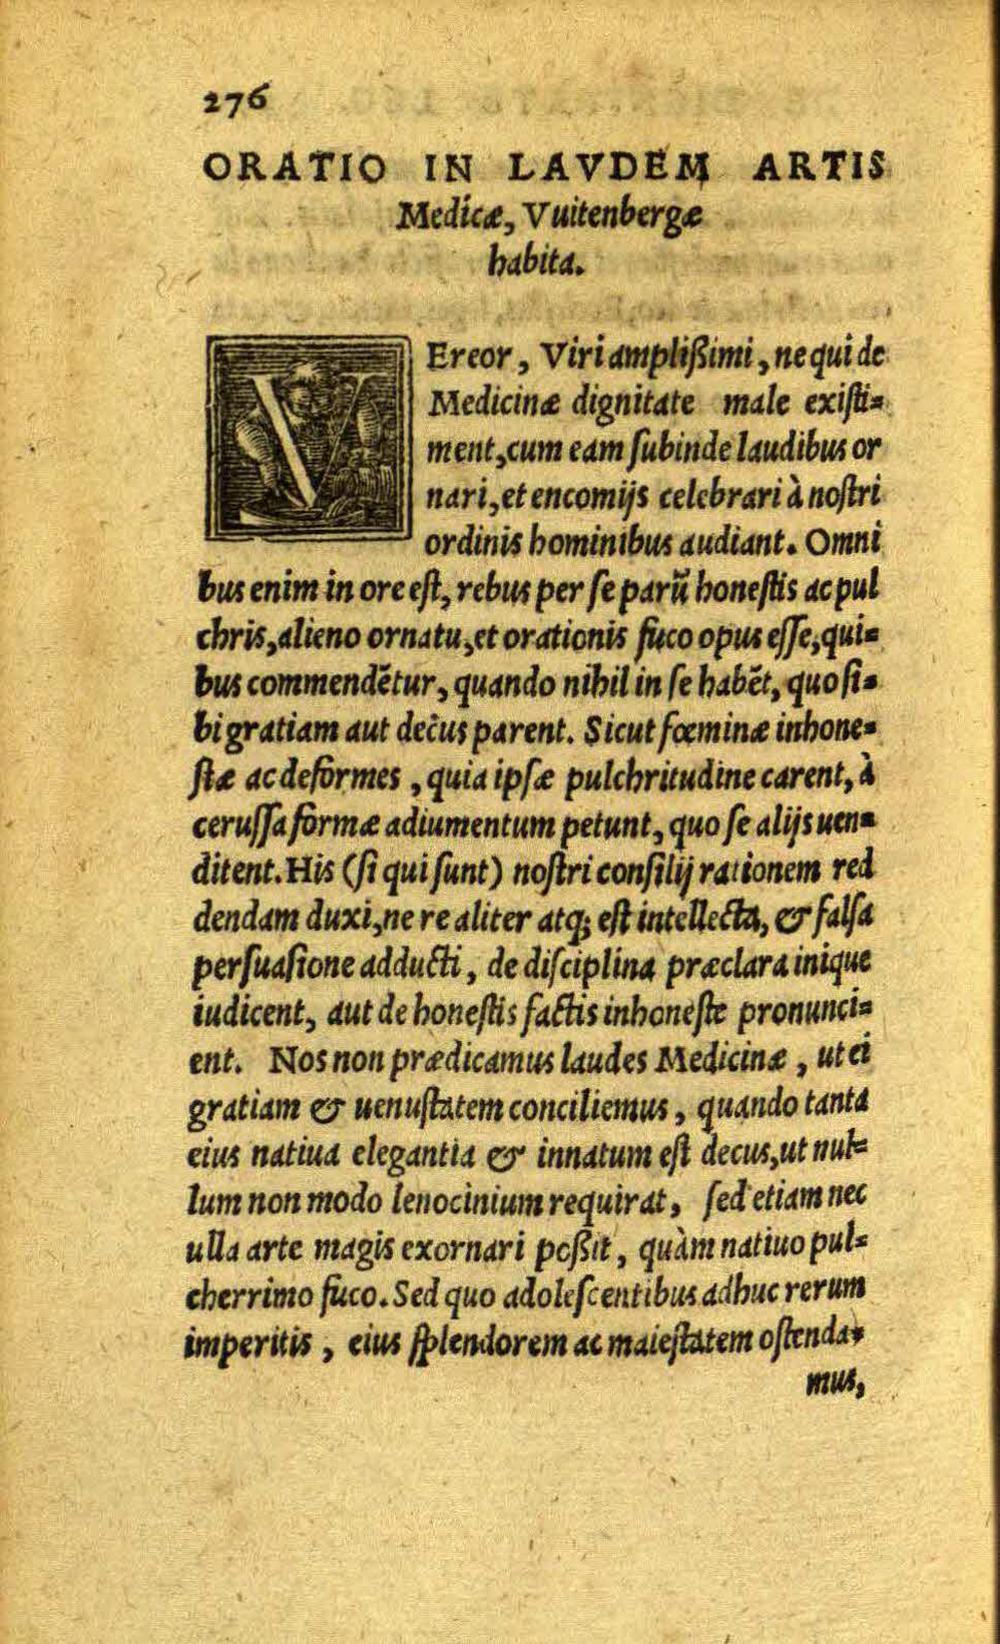 276
ORATIO IN LAVDEM ARTIS
Medicæ, Vuitenbergæ
habita.
VEreor, Viri amplißimi, ne qui de
Medicinæ dignitate male existi=
ment, cum eam subinde laudibus or
nari, et encomijs celebrari à nostri
ordinis hominibus audiant. Omni
bus enim in ore est, rebus per se parũ honestis ac pul
chris, alieno ornatu, et orationis fuco opus esse, qui=
bus commendẽtur, quando nihil in se habẽt, quo si=
bi gratiam aut decus parent. Sicut fœminæ inhone=
stæ ac deformes, quia ipsæ pulchritudine carent, à
cerussa formæ adiumentum petunt, quo se alijs uen=
ditent. His (si qui sunt) nostri consilij rationem red
dendam duxi, ne re aliter atq; est intellecta, & falsa
persuasione adducti, de disciplina præclara inique
iudicent, aut de honestis factis inhoneste pronunci=
ent. Nos non prædicamus laudes Medicinæ, ut ei
gratiam & uenustatem conciliemus, quando tanta
eius natiua elegantia & innatum est decus, ut nul=
lum non modo lenocinium requirat, sed etiam nec
ulla arte magis exornari poßit, quàm natiuo pul=
cherrimo fuco. Sed quo adolescentibus adhuc rerum
imperitis, eius splendorem ac maiestatem ostenda=
mus,